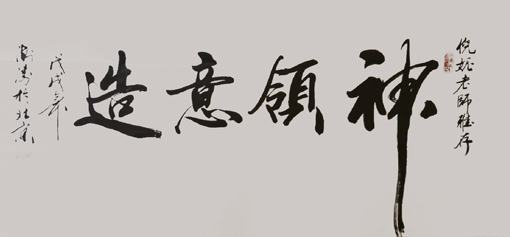 倪妮老師雅存
神領意造
戊戌年
於北京